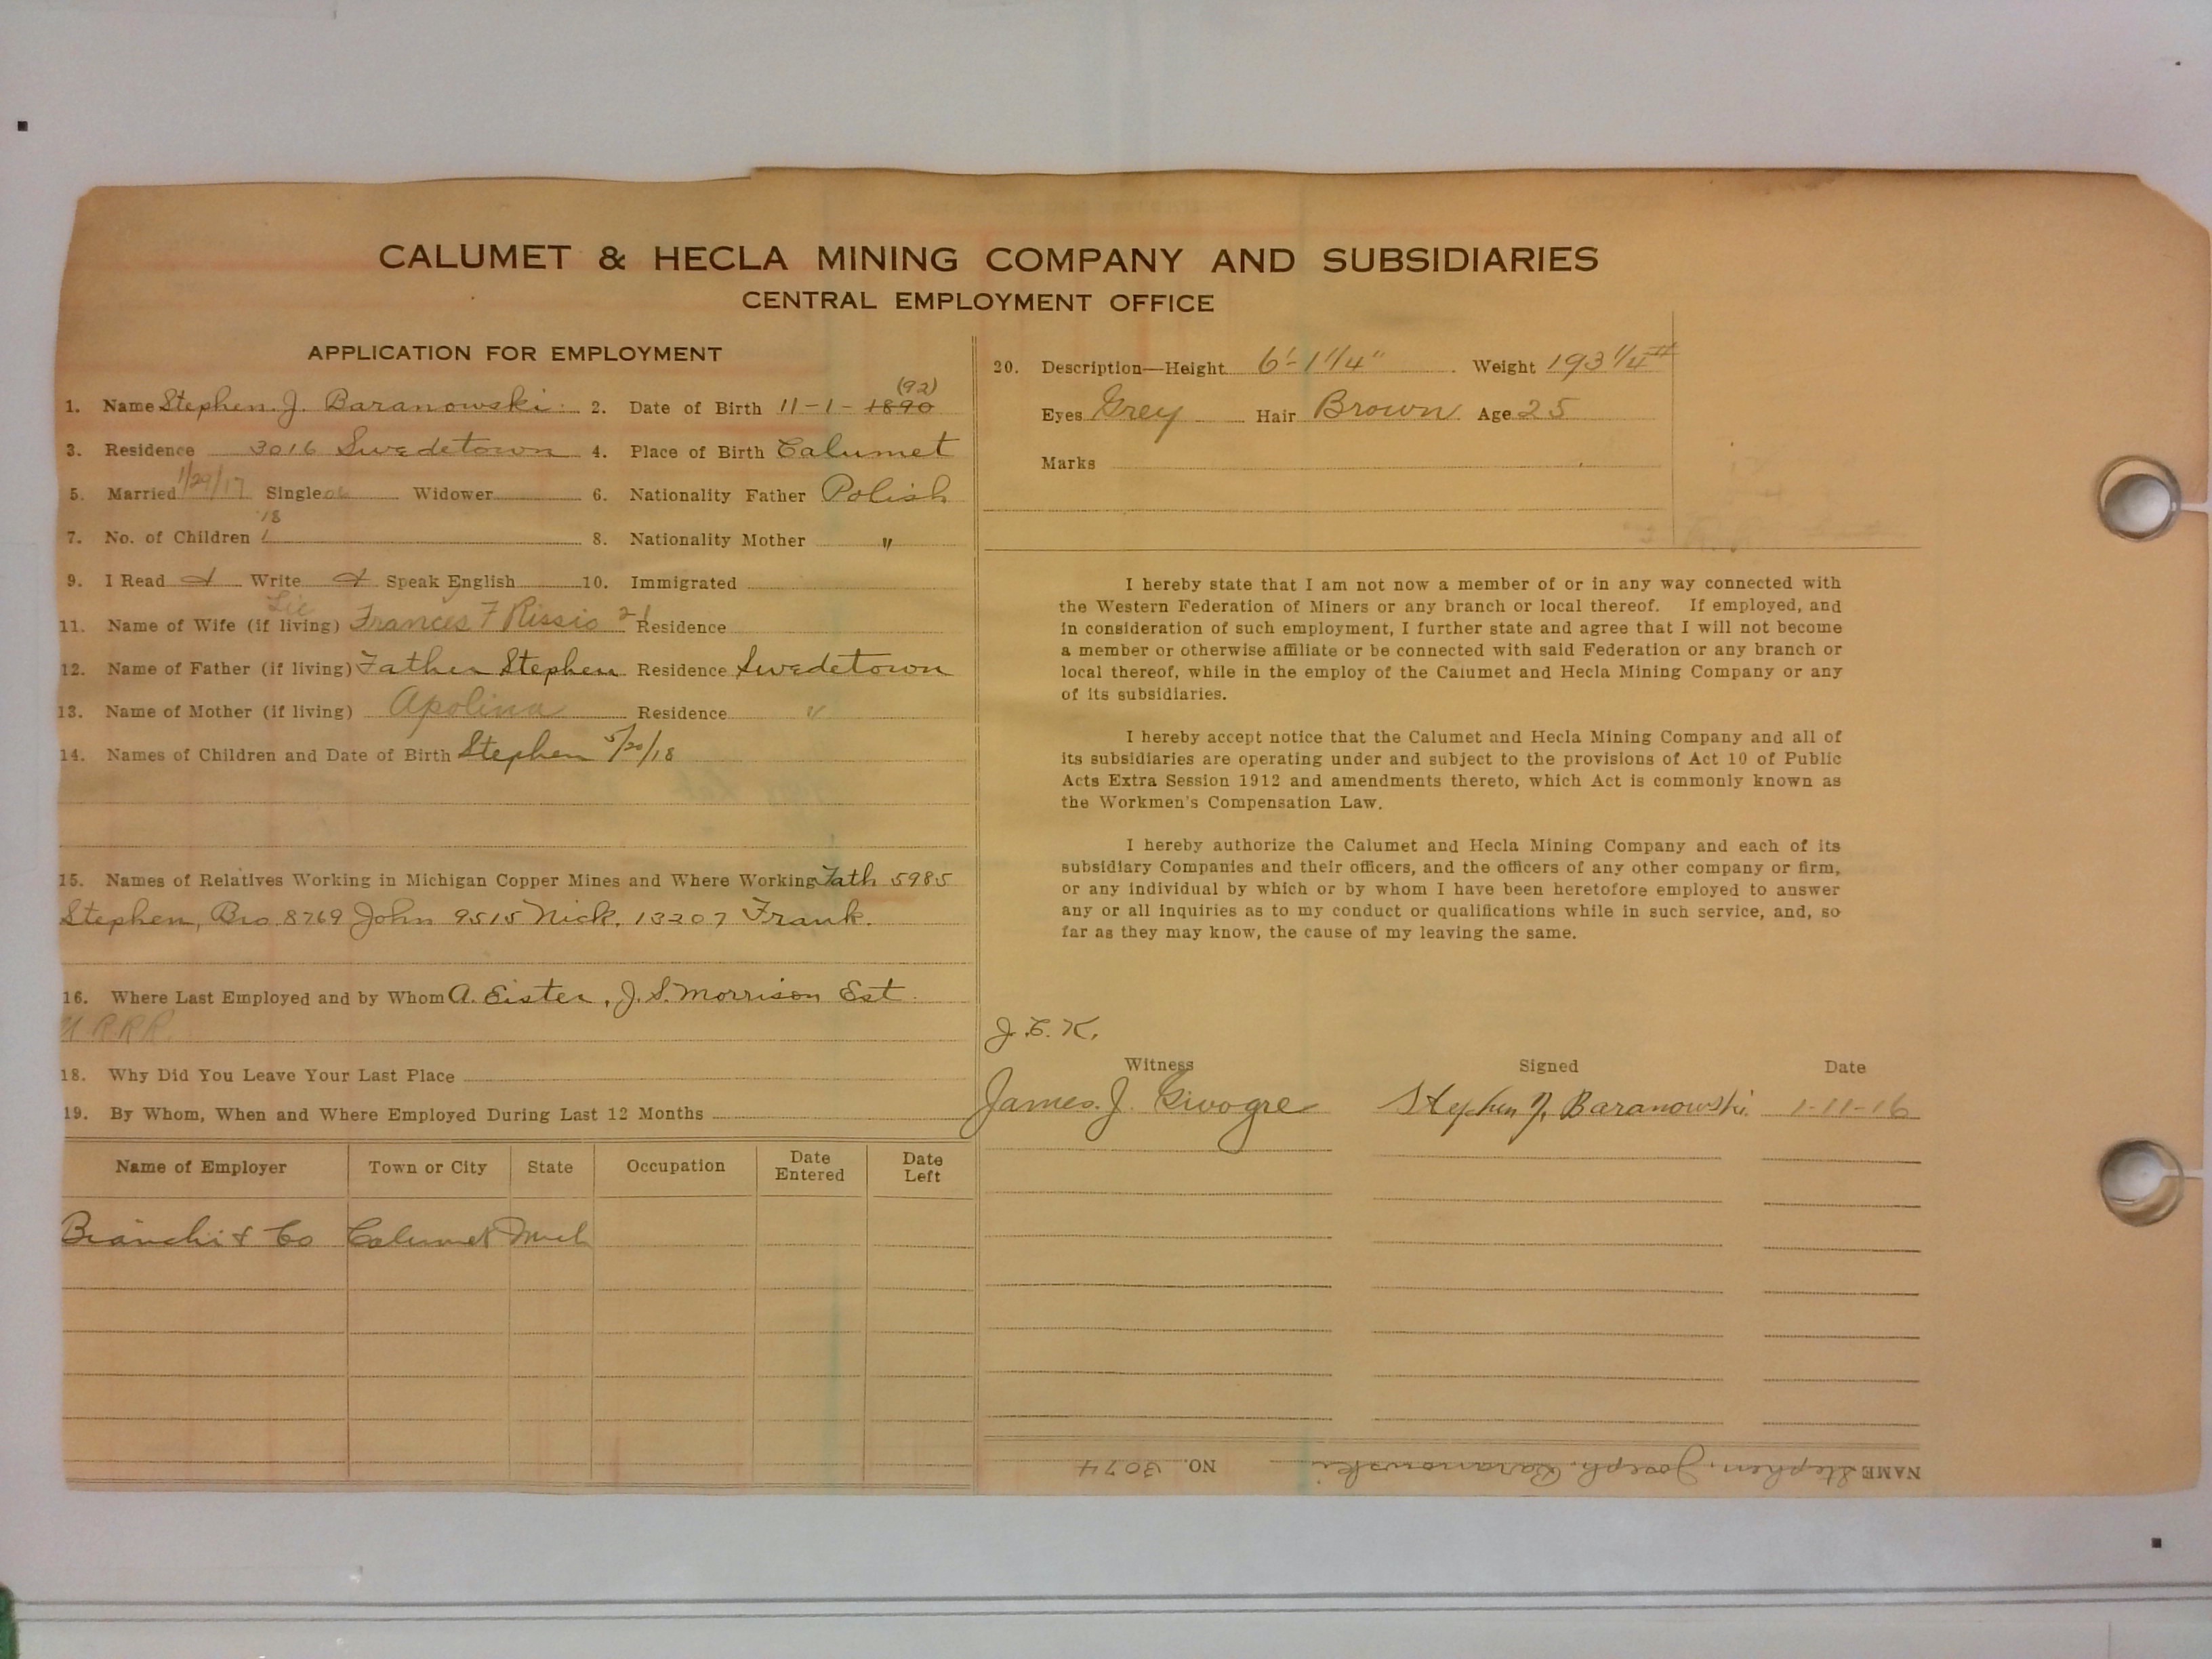 CALUMET & HECLA MINING COMPANY AND SUBSIDIARIES
CENTRAL EMPLOYMENT OFFICE
APPLICATION FOR EMPLOYMENT
(92)
1. Name Stephen. J. Baranowski. 2. Date of Birth 11-1-1890
3. Residence 3016 Swedetown 4. Place of Birth Calumet
5. Married 1/29/17 Single Widower 6. Nationality Father Polish
'18
7. No. of Children 1 8. Nationality Mother "
9. I Read Write Speak English 10. Immigrated
11. Name of Wife (if living) Frances F Rissio 21 Residence
12. Name of Father (if living) Father Stephen Residence Swedetown
13. Name of Mother (if living) Apolina Residence "
14. Names of Children and Date of Birth Stephen 5/20/18
15. Names of Relatives Working in Michigan Copper Mines and Where Working Fath 5985
Stephen, Bro. 8769 John 9515 Nick. 13207 Frank.
16. Where Last Employed and by Whom A. Eister, J. S. Morrison Est.
18. Why Did You Leave Your Last Place
19. By Whom, When and Where Employed During Last 12 Months
Name of Employer Town or City State Occupation Date Entered Date Left
Bianchi & Co Calumet Mich
20. Description—Height 6'-1 1/4" Weight 193 1/4#
Eyes Grey Hair Brown Age 25
Marks
I hereby state that I am not now a member of or in any way connected with
the Western Federation of Miners or any branch or local thereof. If employed, and
in consideration of such employment, I further state and agree that I will not become
a member or otherwise affiliate or be connected with said Federation or any branch or
local thereof, while in the employ of the Calumet and Hecla Mining Company or any
of its subsidiaries.
I hereby accept notice that the Calumet and Hecla Mining Company and all of
its subsidiaries are operating under and subject to the provisions of Act 10 of Public
Acts Extra Session 1912 and amendments thereto, which Act is commonly known as
the Workmen's Compensation Law.
I hereby authorize the Calumet and Hecla Mining Company and each of its
subsidiary Companies and their officers, and the officers of any other company or firm,
or any individual by which or by whom I have been heretofore employed to answer
any or all inquiries as to my conduct or qualifications while in such service, and, so
far as they may know, the cause of my leaving the same.
J. C. K.
Witness Signed Date
James. J. Givogre Stephen J. Baranowski 1-11-16
NAME Stephen, Joseph. Baranowski NO. 3074